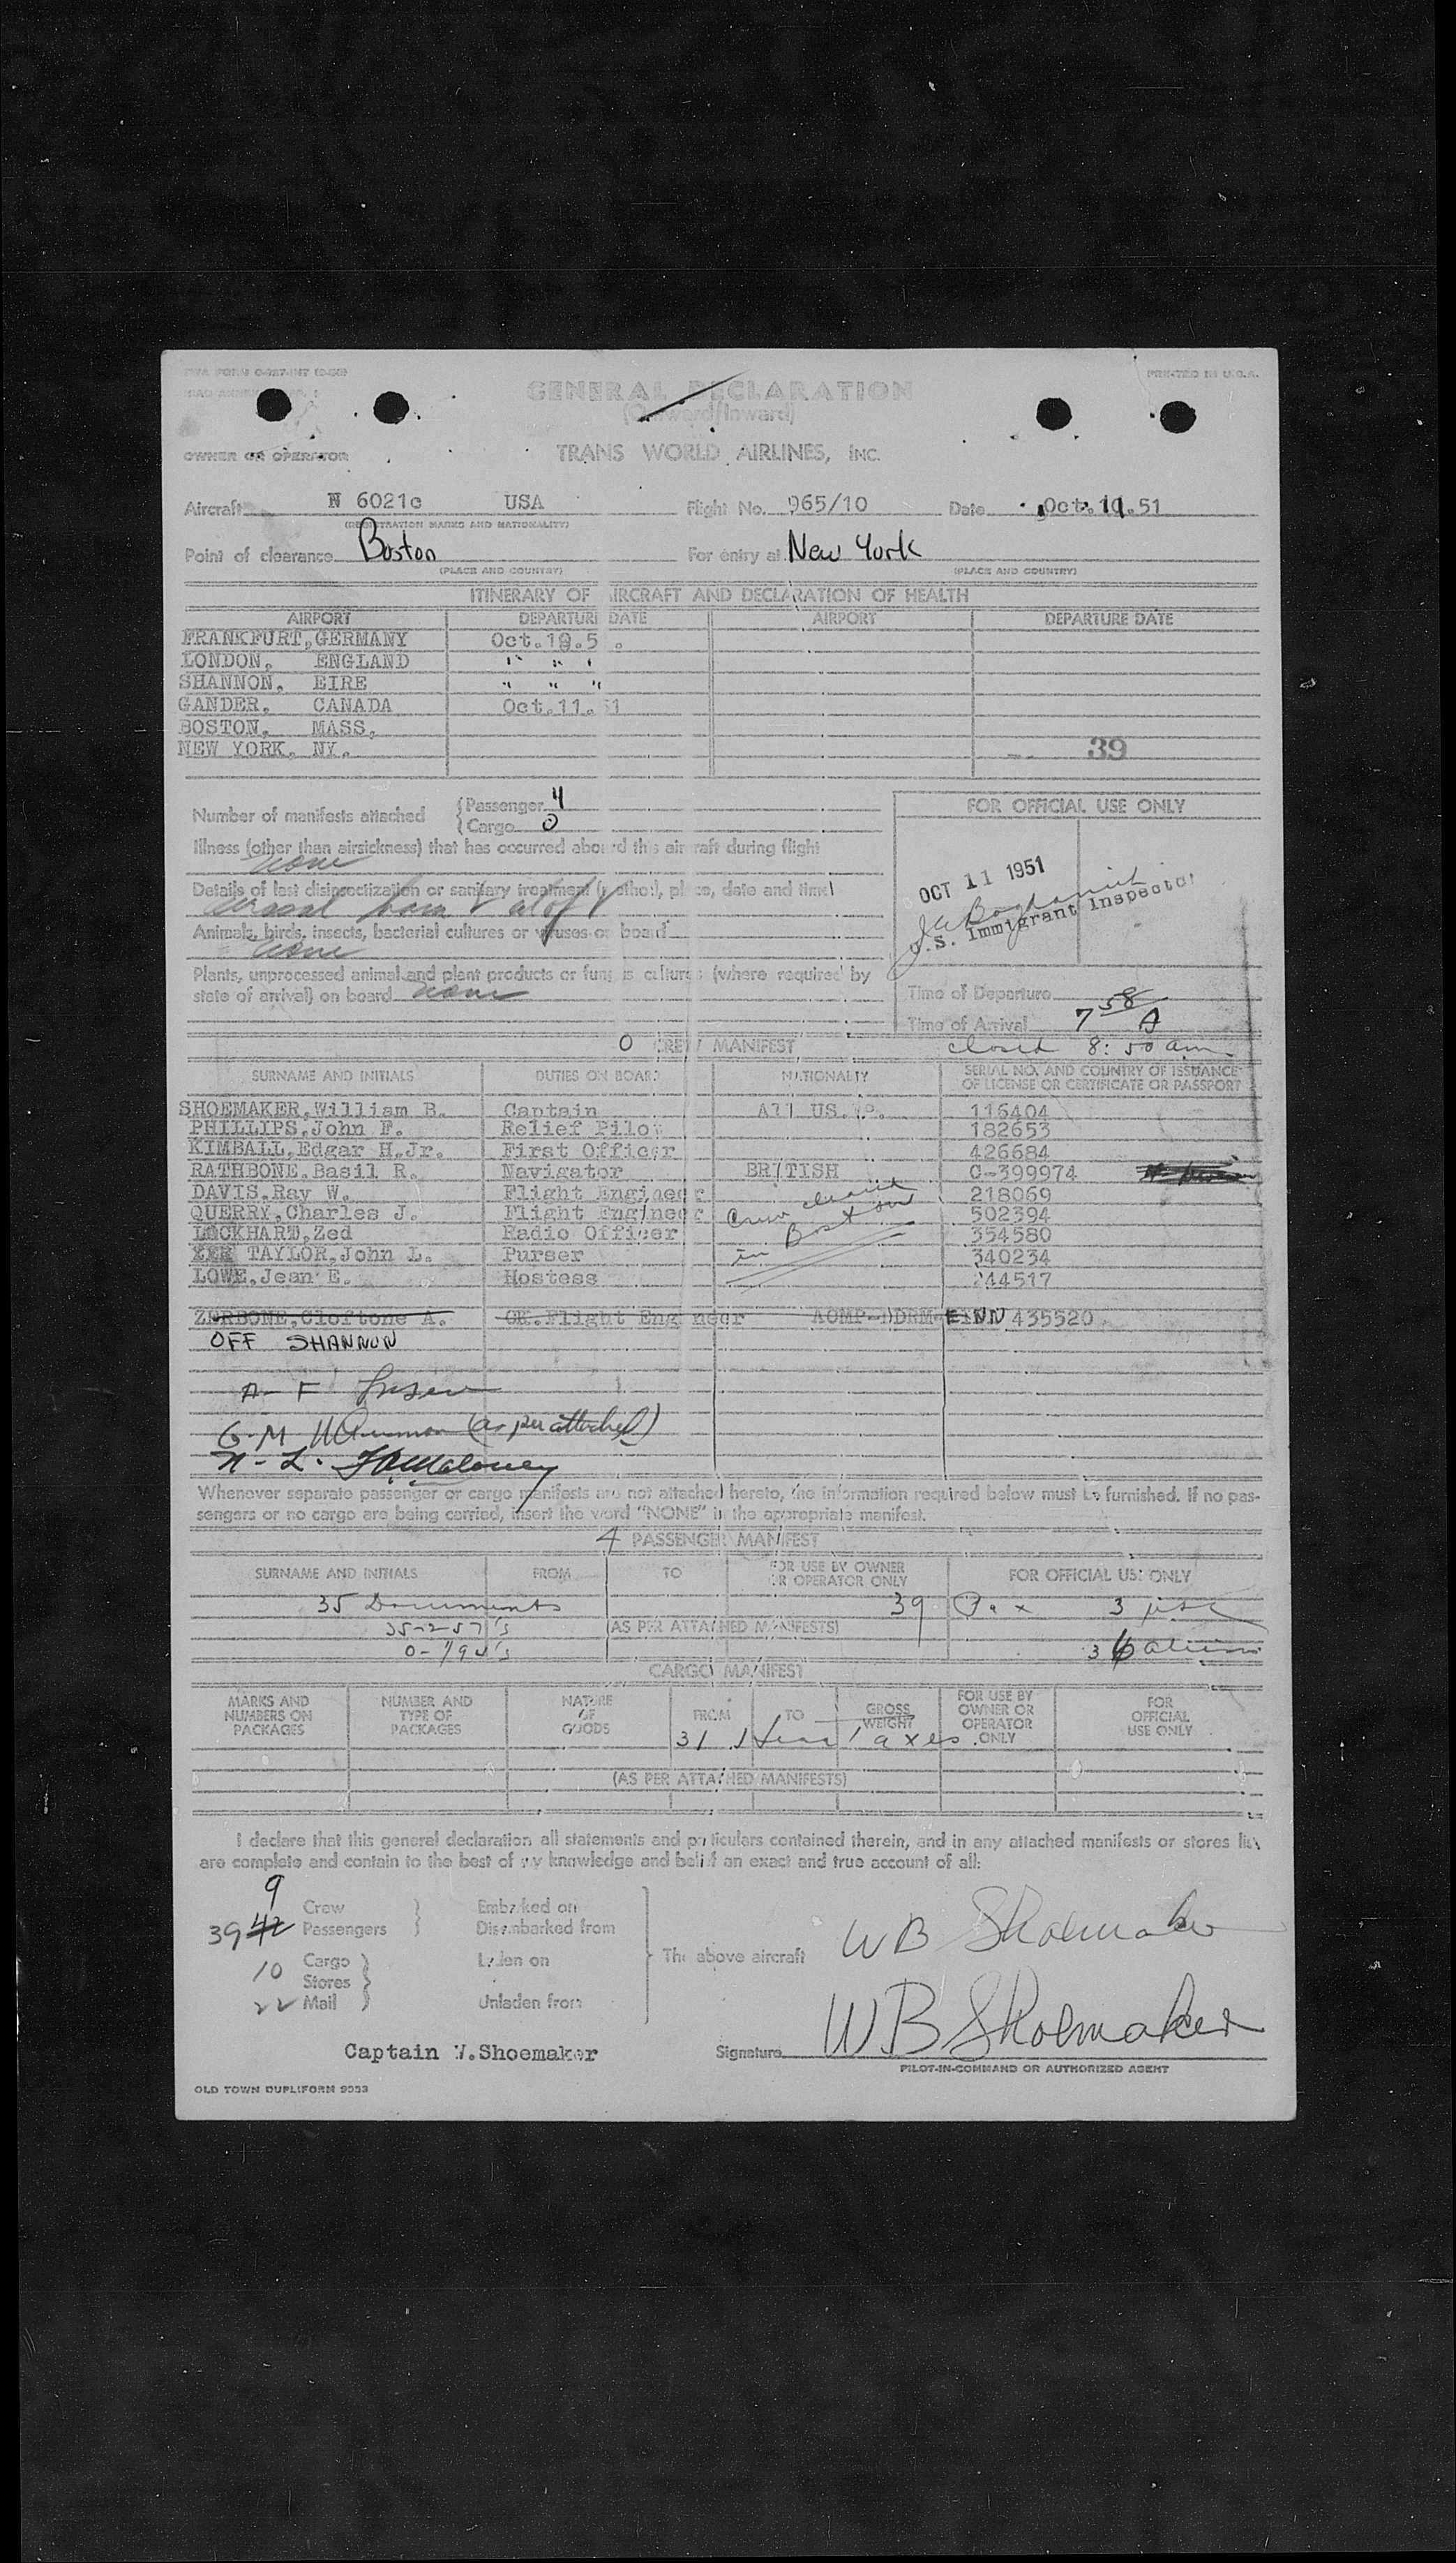 PRINTED IN U.S.A.
GENERAL DECLARATION
(Outward/Inward)
OWNER OR OPERATOR TRANS WORLD AIRLINES, INC.
Aircraft N 6021c USA Flight No. 965/10 Date Oct. 11. 51
(REGISTRATION MARKS AND NATIONALITY)
Point of clearance Boston For entry at New York
(PLACE AND COUNTRY) (PLACE AND COUNTRY)
ITINERARY OF AIRCRAFT AND DECLARATION OF HEALTH
AIRPORT DEPARTURE DATE AIRPORT DEPARTURE DATE
FRANKFURT, GERMANY Oct.10.5
LONDON, ENGLAND " " "
SHANNON, EIRE " " "
GANDER, CANADA Oct.11.51
BOSTON, MASS,
NEW YORK, NY. 39
Number of manifests attached { Passenger 4
{ Cargo 0
FOR OFFICIAL USE ONLY
Illness (other than airsickness) that has occurred aboard this aircraft during flight
none
OCT 11 1951
Details of last disinsectization or sanitary treatment (method, place, date and time)
aerosol bomb aloft
U.S. Immigrant Inspector
Animals, birds, insects, bacterial cultures or viruses on board
none
Plants, unprocessed animal and plant products or fungus cultures (where required by
state of arrival) on board none
Time of Departure
Time of Arrival 7 58 A
0 CREW MANIFEST closed 8:50 am.
SURNAME AND INITIALS DUTIES ON BOARD NATIONALITY SERIAL NO. AND COUNTRY OF ISSUANCE
OF LICENSE OR CERTIFICATE OR PASSPORT
SHOEMAKER, William B. Captain All US. 116404
PHILLIPS, John F. Relief Pilot 182653
KIMBALL, Edgar H.Jr. First Officer 426684
RATHBONE, Basil R. Navigator BRITISH C-399974
DAVIS, Ray W. Flight Engineer 218069
QUERRY, Charles J. Flight Engineer Crew cleared 502394
LOCKHART, Zed Radio Officer in Boston 354580
TAYLOR, John L. Purser 340234
LOWE, Jean E. Hostess 244517
ZERBONE, Cloftone A. CK. Flight Engineer 435520
OFF SHANNON
A- F
G-M (as per attached)
N-L.
Whenever separate passenger or cargo manifests are not attached hereto, the information required below must be furnished. If no pas-
sengers or no cargo are being carried, insert the word "NONE" in the appropriate manifest.
4 PASSENGER MANIFEST
SURNAME AND INITIALS FROM TO FOR USE BY OWNER
OR OPERATOR ONLY FOR OFFICIAL USE ONLY
35 Documents 39 Pax 3
(AS PER ATTACHED MANIFESTS)
36 aliens
CARGO MANIFEST
MARKS AND
NUMBERS ON
PACKAGES NUMBER AND
TYPE OF
PACKAGES NATURE
OF
GOODS FROM TO GROSS
WEIGHT FOR USE BY
OWNER OR
OPERATOR
ONLY FOR
OFFICIAL
USE ONLY
31 Head Taxes
(AS PER ATTACHED MANIFESTS)
I declare that this general declaration all statements and particulars contained therein, and in any attached manifests or stores list
are complete and contain to the best of my knowledge and belief an exact and true account of all:
9 Crew Embarked on
39 42 Passengers Disembarked from
10 Cargo Laden on The above aircraft WB Shoemaker
Stores
22 Mail Unladen from
Captain W.Shoemaker Signature WB Shoemaker
PILOT-IN-COMMAND OR AUTHORIZED AGENT
OLD TOWN DUPLIFORM 9053